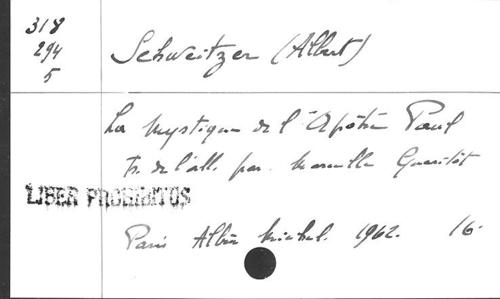 318
294
5
Schweitzer (Albert)
La Mystique de l'Apôtre Paul
tr. de l'all. par. Marcelle Gueritôt
LIBER PROHIBITUS
Paris Albin Michel. 1962. 16.